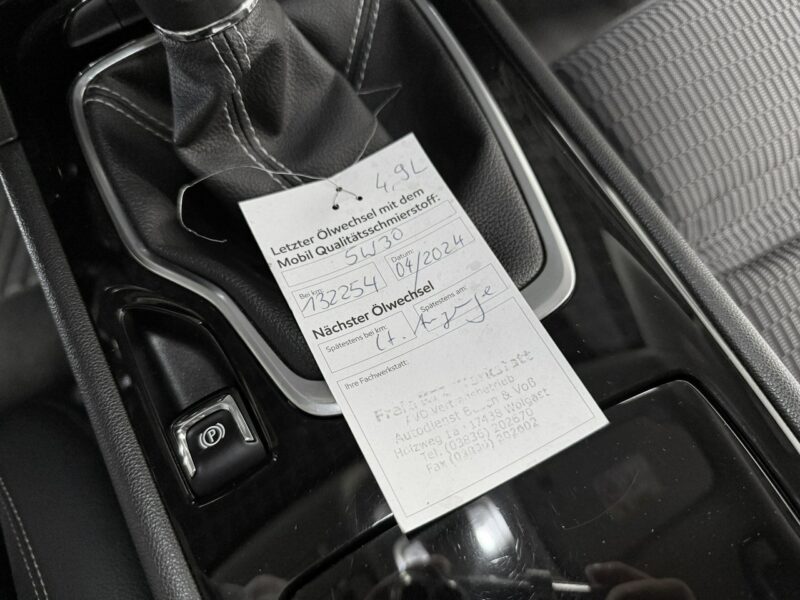 4,9L
Letzter Ölwechsel mit dem
Mobil Qualitätsschmierstoff:
5W30
Bei km: Datum:
132254 04/2024
Nächster Ölwechsel
Spätestens bei km: Spätestens am:
lt. Anzeige
Ihre Fachwerkstatt:
Autodienst & Voß
Holzweg 1a · 17438 Wolgast
Tel. (03836) 202670
Fax
P